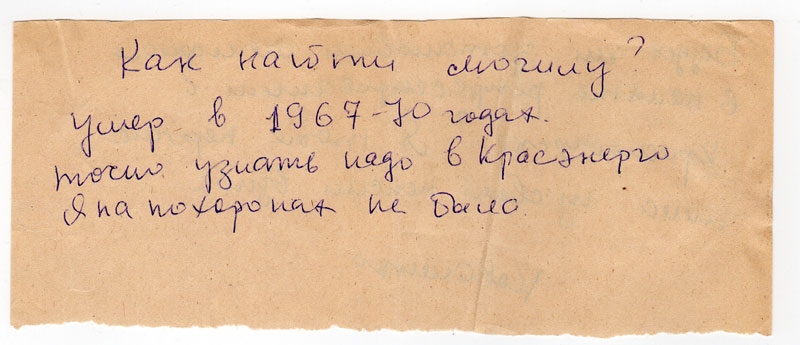 Как найти могилу?
Умер в 1967-70 годах.
точно узнать надо в Красэнерго
Я на похоронах не была